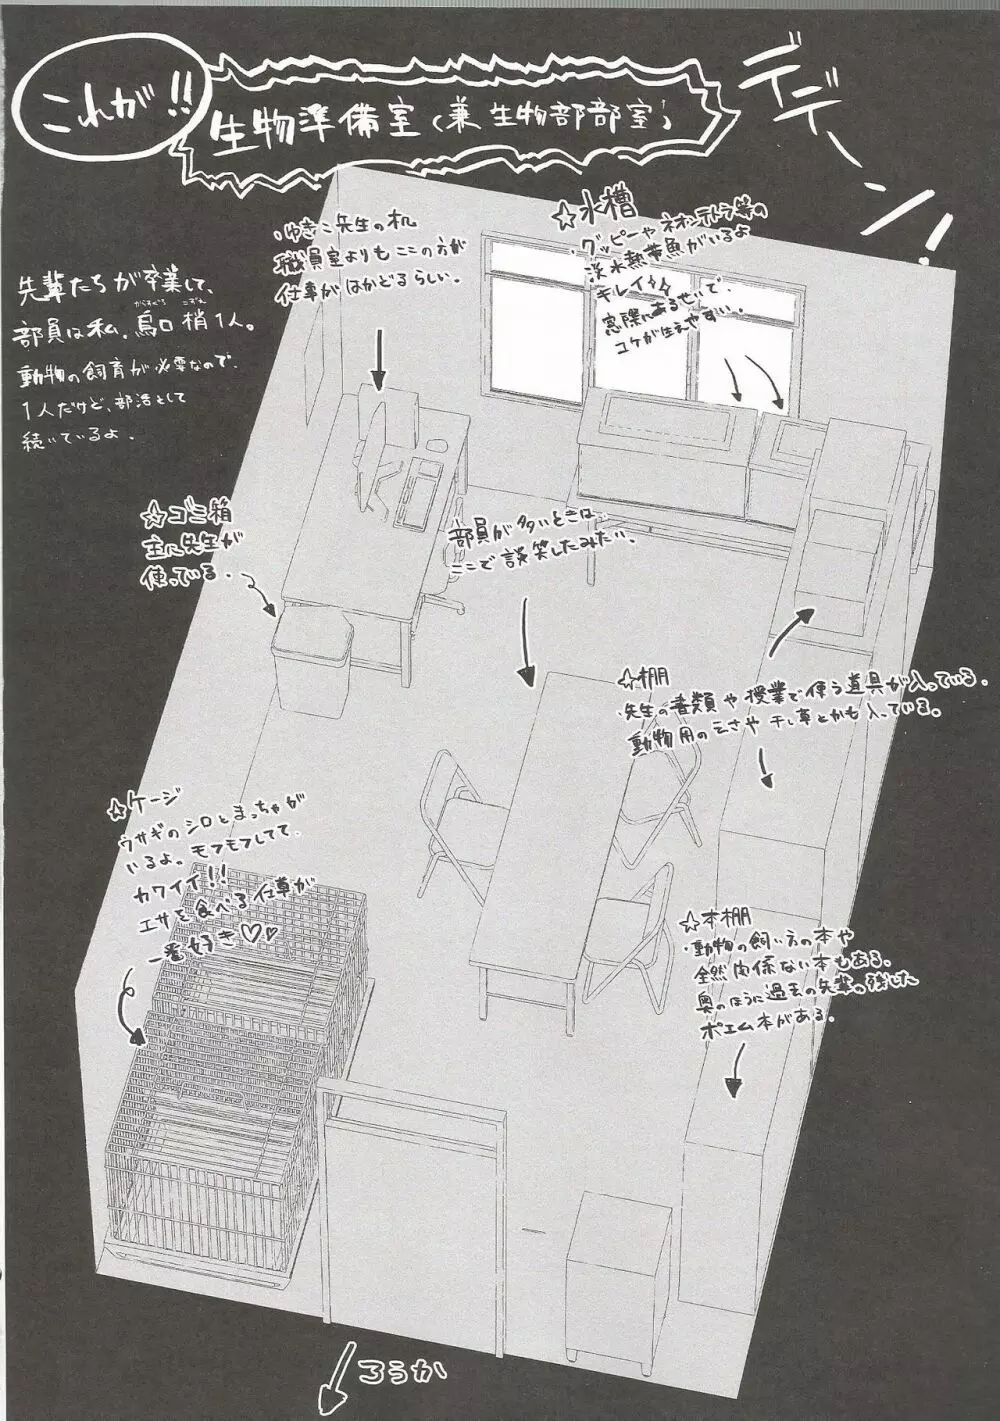 これが!!
生物準備室(兼 生物部部室)
デデーン!
先輩たちが卒業して、
部員は私、烏口 梢1人。
からすぐち こずえ
動物の飼育が必要なので、
1人だけど、部活として
続いているよ。
ゆきこ先生の机
職員室よりもここの方が
仕事がはかどるらしい。
☆水槽
グッピーやネオンテトラ等の
淡水熱帯魚がいるよ
キレイ
窓際にあるせいで、
コケが生えやすい。
☆ゴミ箱
主に先生が
使っている。
部員が多いときは、
ここで談笑したみたい。
☆棚
先生の書類や授業で使う道具が入っている。
動物用のえさや干し草とかも入っている。
☆ケージ
ウサギのシロとまっちゃが
いるよ。モフモフしてて
カワイイ!!
エサを食べる仕草が
一番好き♡♥
☆本棚
動物の飼い方の本や
全然関係ない本もある。
奥のほうに過去の先輩の残した
ポエム本がある。
ろうか